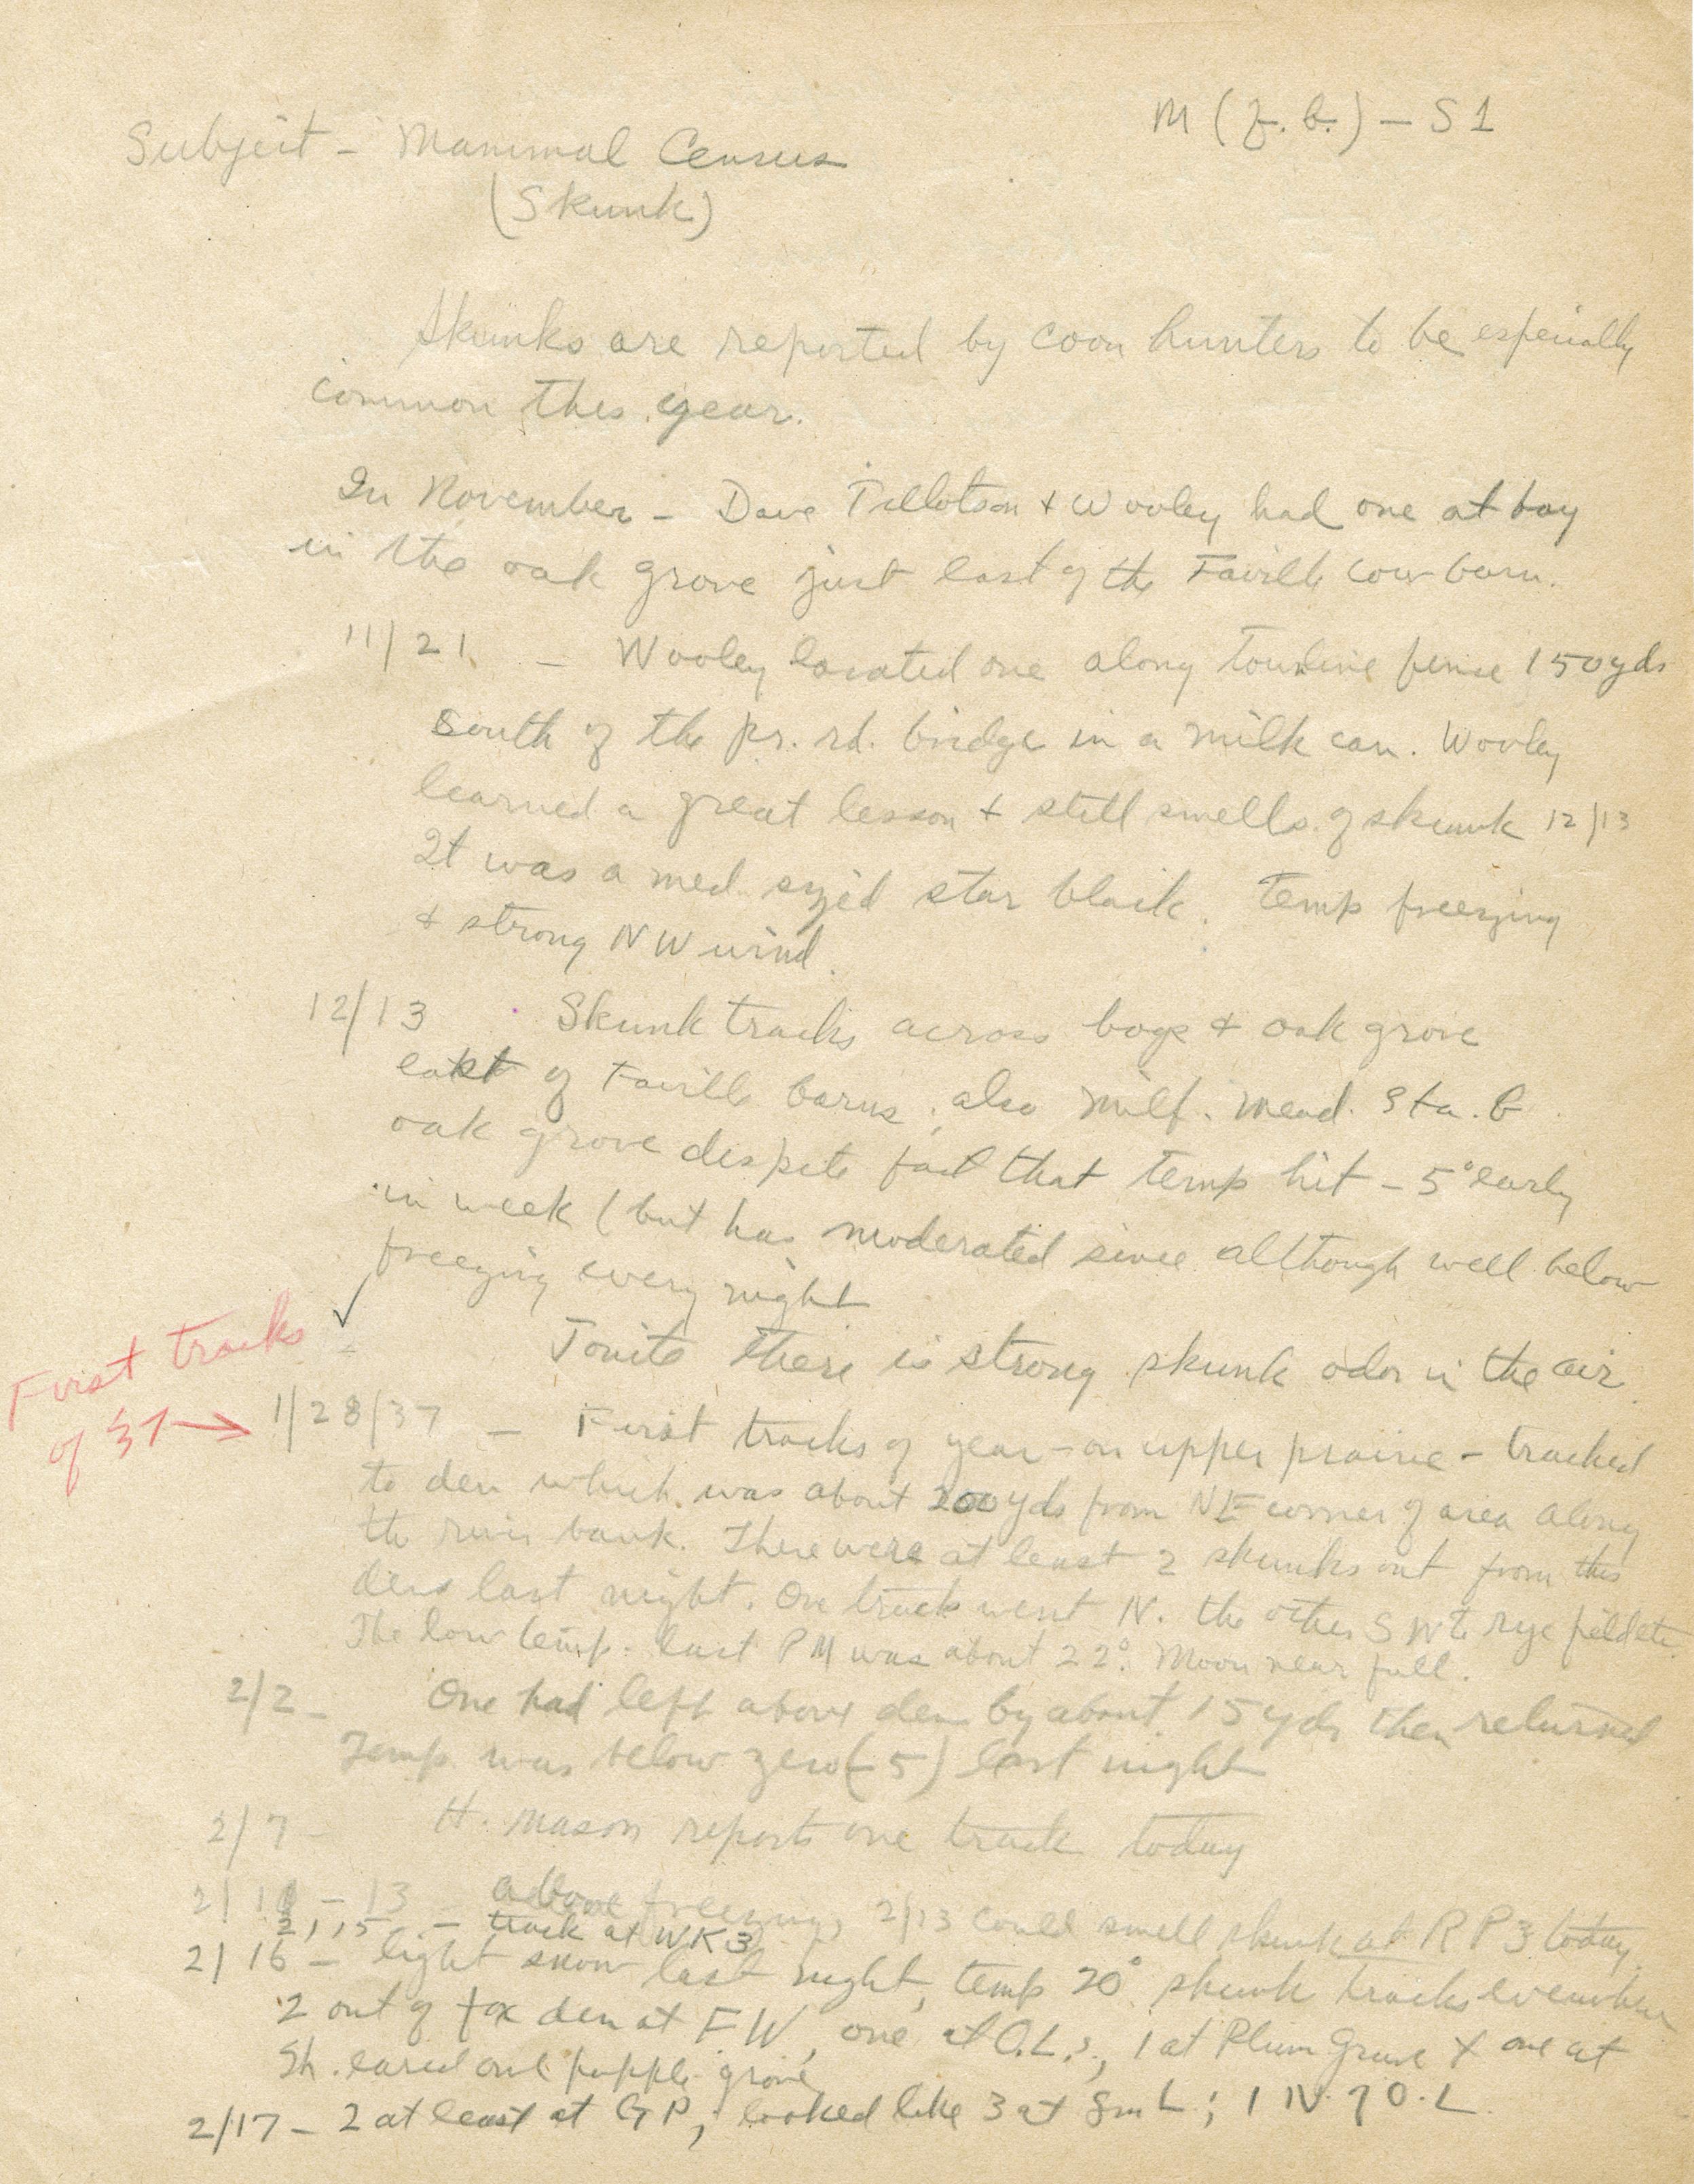 M (f. b.) — S 1
Subject - Mammal Census
(Skunk)
Skunks are reported by coon hunters to be especially
common this year.
In November - Dave Tillotson + Wooley had one at bay
in the oak grove just east of the Faville cow barn.
11/21 — Wooley located one along townline fence 150 yds
south of the pr. rd. bridge in a milk can. Wooley
learned a great lesson + still smells of skunk 12/13
It was a med sized star black. Temp freezing
+ strong NW wind.
12/13 Skunk tracks across bogs + oak grove
east of Faville barns, also Milf. Mead. Sta. B
oak grove despite fact that temp hit -5° early
in week (but has moderated since although well below
freezing every night
Tonite there is strong skunk odor in the air.
First tracks
of 37 →
1/28/37 — First tracks of year - on upper prairie - tracked
to den which was about 200 yds from NE corner of area along
the river bank. There were at least 2 skunks out from this
den last night. One track went N. the other SW to rye field etc.
The low temp. last PM was about 22°. Moon near full.
2/2 - One had left above den by about 15 yds then returned
Temp was below zero (-5) last night
2/7 - H. Mason reports one track today
2/11 - 13 above freezing, 2/13 could smell skunk at RP3 today.
2/15 - track at WK3
2/16 - light snow last night, temp 20° skunk tracks everywhere
2 out of fox den at FW, one at O.L., 1 at Plum Grove + one at
Sh. eared owl popple grove
2/17 - 2 at least at GP; looked like 3 at Sm L; 1 N. of O.L.